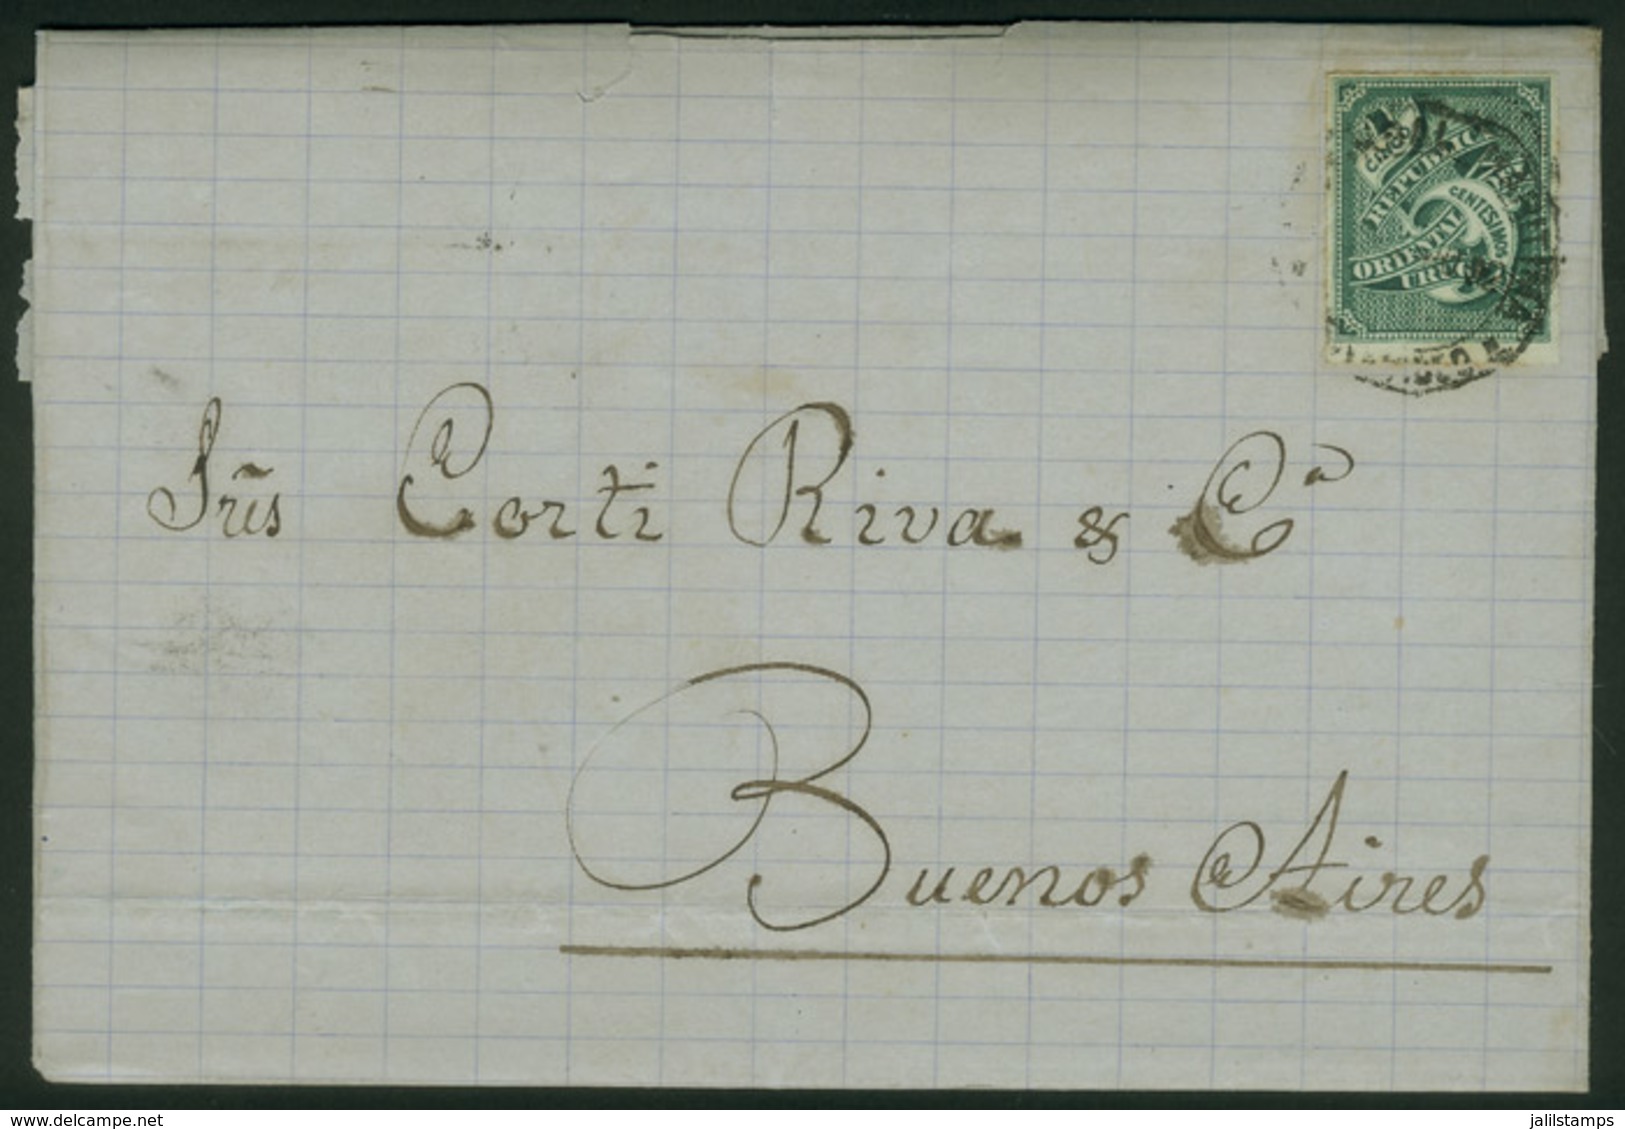 REPUBLICA
ORIENTAL
URUG
5
CENTESIMOS
Srẽs Corti Riva & Cª
Buenos Aires
delcampe.net
jalilstamps